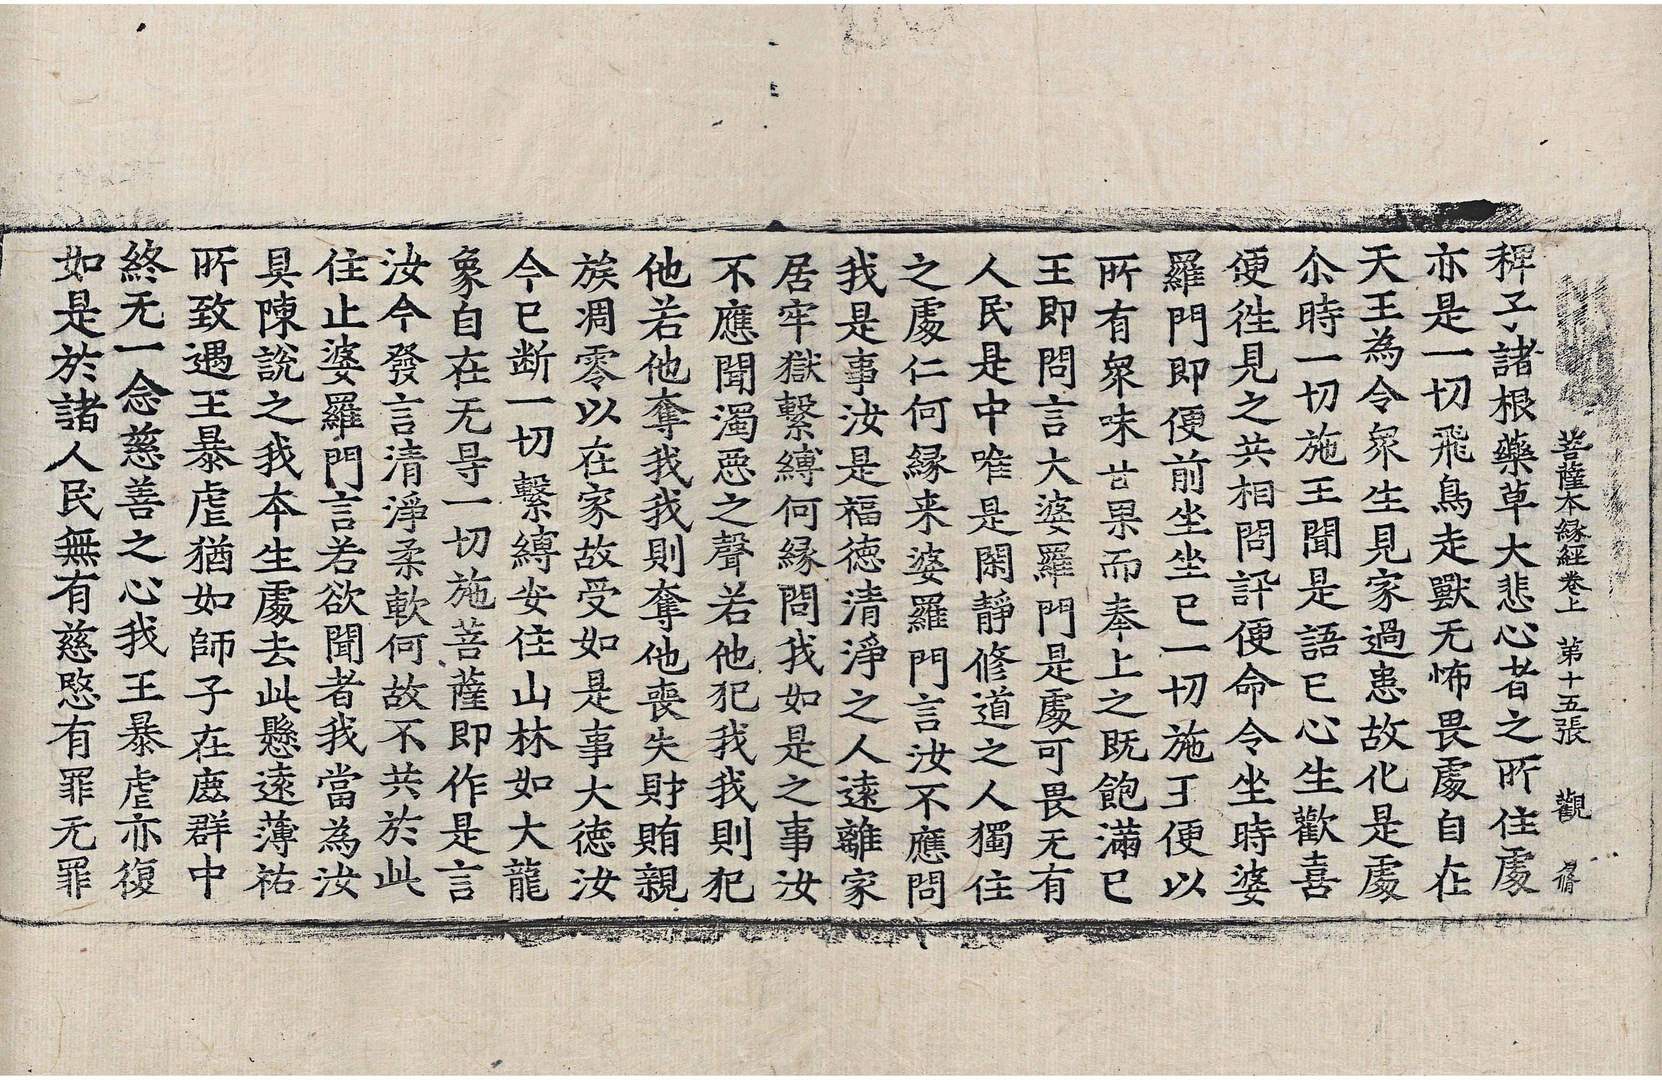 菩薩本縁經卷上 第十五張 觀
稗子諸根藥草大悲心者之所住處
亦是一切飛鳥走獸无怖畏處自在
天王為令衆生見家過患故化是處
尒時一切施王聞是語已心生歡喜
便徃見之共相問訊便命令坐時婆
羅門即便前坐坐已一切施王便以
所有衆味甘果而奉上之既飽滿已
王即問言大婆羅門是處可畏无有
人民是中唯是閑靜修道之人獨住
之處仁何縁来婆羅門言汝不應問
我是事汝是福徳清淨之人遠離家
居牢獄繫縛何縁問我如是之事汝
不應聞濁惡之聲若他犯我我則犯
他若他奪我我則奪他喪失財賄親
族凋零以在家故受如是事大徳汝
今已断一切繫縛安住山林如大龍
象自在无㝵一切施菩薩即作是言
汝今發言清淨柔軟何故不共於此
住止婆羅門言若欲聞者我當為汝
具陳說之我本生處去此懸遠薄祐
所致遇王暴虐猶如師子在鹿群中
終无一念慈善之心我王暴虐亦復
如是於諸人民無有慈愍有罪无罪